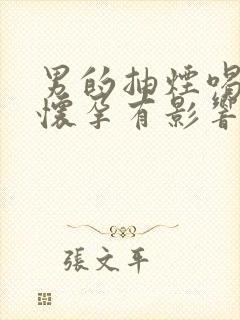 男的抽煙喝
懷孕有影響
張文平